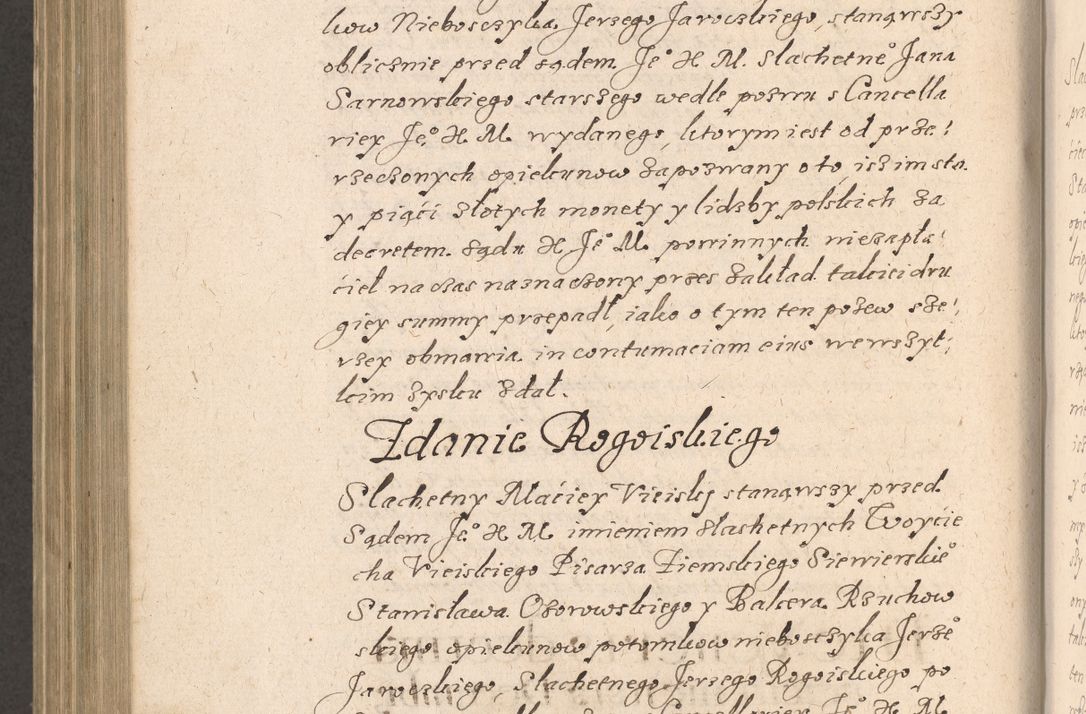 kow Nieboszczyka. Jerzego Jaroczkiego, stanąwszy
oblicznie przed sądem. Je° X M. Slachetne° Jana
Sarnowskiego starszego wedle pozwu s Cancella
riey Je° X M wydanego, ktorym iest od prze:
rzeczonych opiekunow zapozwany o to, isz im sto.
y piąći złotych monety y lidzby polskich za
decretem. sądu X Je° M. powinnych niezapła:
ćieł na czas naznaczony przes zakład. takieidru
giey summy przepadł, iako o tym ten pozew sze:
rzey obmawia. in contumaciam eius wewszyt:
kim zysku zdał.
Zdanie Rogoiskiego
Slachetny Maćiey Vieiskj stanąwszy przed.
Sądem Je° X M. imieniem slachetnych Woyćie
cha Vieiskiego Pisarza Ziemskiego Siewierskie°
Stanisława. Ozorowskiego y Balcera. Rzuchow
skiego opiekunow potomkow nieboszczyka Jerze°
Jaroczkiego, Slachetnego Jerzego Rogoiskiego po
Je° X M